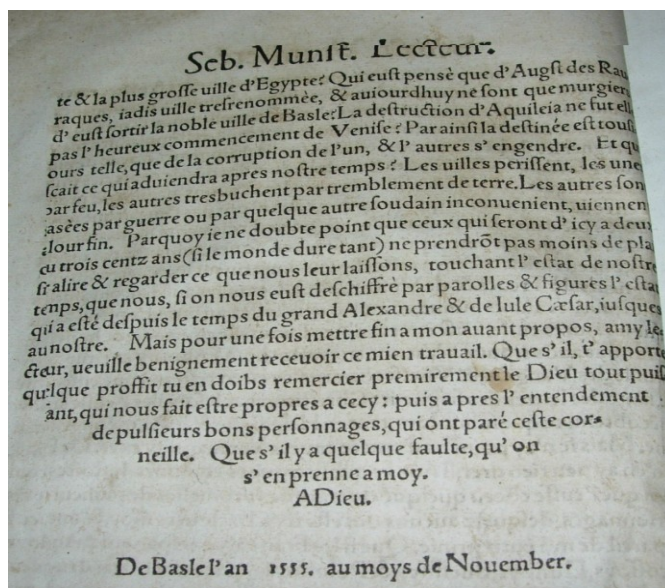 Seb. Munst. Lecteur.
te & la plus grosse uille d'Egypte? Qui eust pensè que d'Augst des Rau
raques, iadis uille tresrenommée, & auiourdhuy ne sont que murgiers
d'eust sortir la noble uille de Basle? La destruction d'Aquileia ne fut elle
pas l'heureux commencement de Venise? Par ainsi la destinée est tousi
ours telle, que de la corruption de l'un, & l'autres s'engendre. Et qui
scait ce qui aduiendra apres nostre temps? Les uilles perissent, les unes
par feu, les autres tresbuchent par tremblement de terre. Les autres son
asées par guerre ou par quelque autre soudain inconuenient, uiennent
a lour fin. Parquoy ie ne doubte point que ceux qui seront d'icy a deux
cu trois centz ans (si le monde dure tant) ne prendrõt pas moins de plai
sir a lire & regarder ce que nous leur laissons, touchant l'estat de nostre
temps, que nous, si on nous eust deschiffrè par parolles & figures l'estat
qui a esté despuis le temps du grand Alexandre & de Iule Cæsar, iusques
au nostre. Mais pour une fois mettre fin a mon auant propos, amy le
cteur, ueuille benignement receuoir ce mien trauail. Que s'il, t'apporte
quelque proffit tu en doibs remercier premirement le Dieu tout puiss
ant, qui nous fait estre propres a cecy: puis a pres l'entendement
de pulsieurs bons personnages, qui ont paré ceste cor-
neille. Que s'il y a quelque faulte, qu'on
s'en prenne a moy.
ADieu.
De Basle l'an 1555. au moys de Nouember.